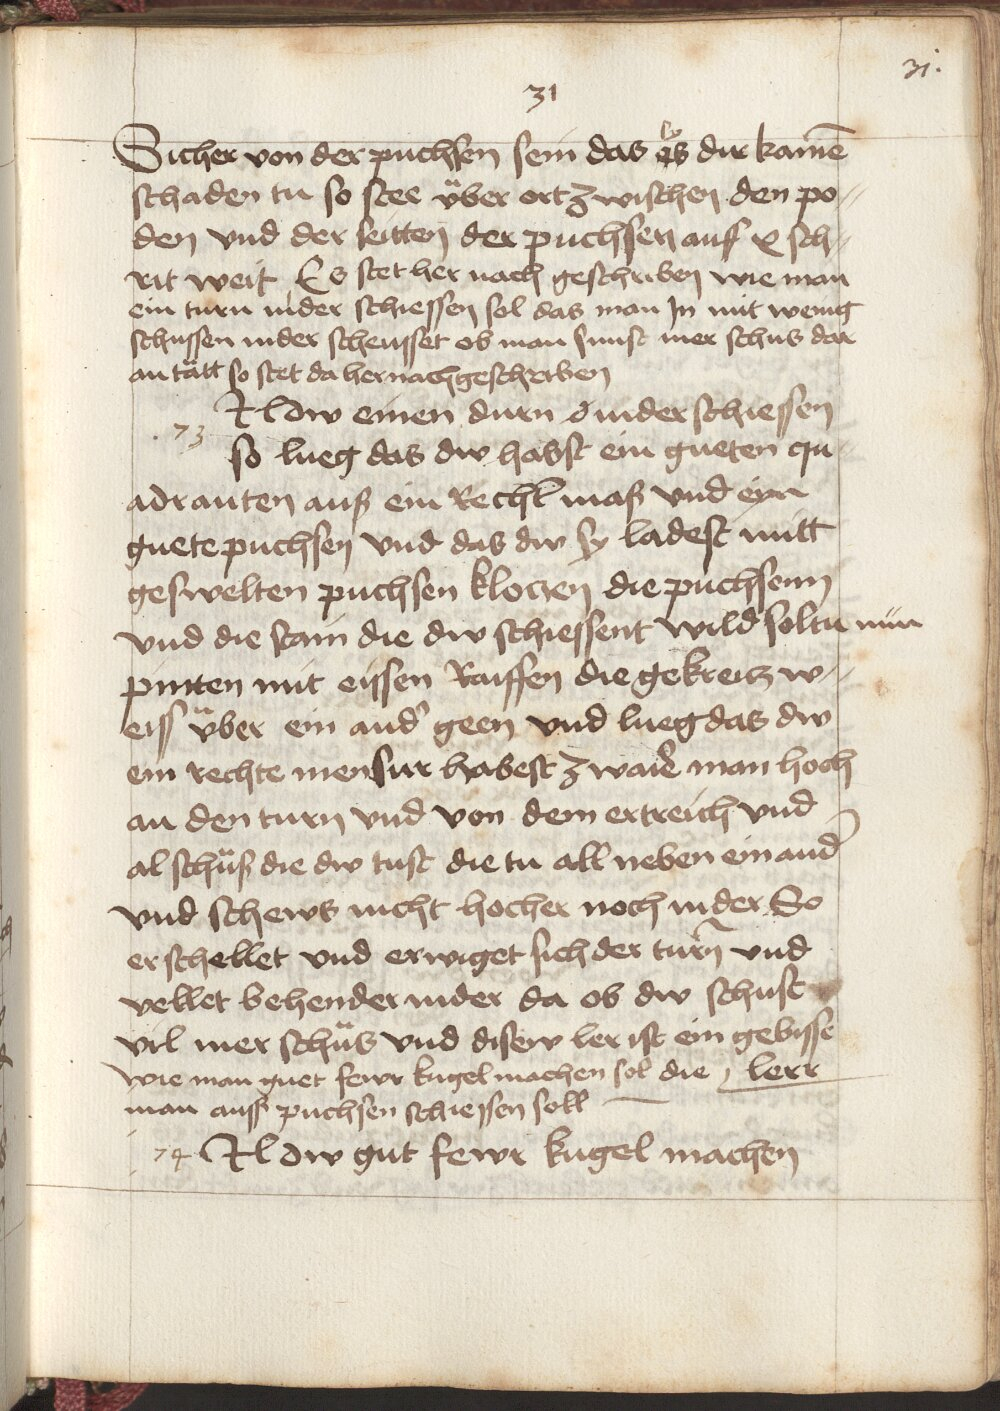 31.
31
Sicher von der puchsen sein das es dir kainē
schaden tu so stee über ort zwischen den po=
den vnd der seitten der puchsen auf x sch=
rit weit Es stet her nach geschriben wie man
ein turn nider schiessen sol das man In mit wenig
schussen nider scheusset ob man sunst mer schus dar
an tätt so stet da hernach geschriben
73 Il dw einen durn nider schiessen
so lueg das dw habst ein gueten qu
adranten auß ein Rechl mass vnd eyn
guete puchsen vnd das dw sy ladest mitt
geswelten puchsen kloczen die puchsenn
vnd die stain die dw schiessent wild soltu nün
pinten mit eissen Raiffen die gekreitz w=
eiss über ein and geen vnd lueg das dw
ein rechte mensur habest zwaier man hoch
an den turn vnd von dem ertreich vnd
al schüß die dw tust die tu all neben ein and
vnd schews nicht hocher noch nider So
erschellet vnd erwiget sich der turn vnd
vellet behender nider da ob dw schust
vil mer schüs vnd disew ler ist ein gebisse
lerr
wie man guet fewr kugel machen sol die
man auss puchsen schiessen soll
74 Il dw gut fewr kugel machen